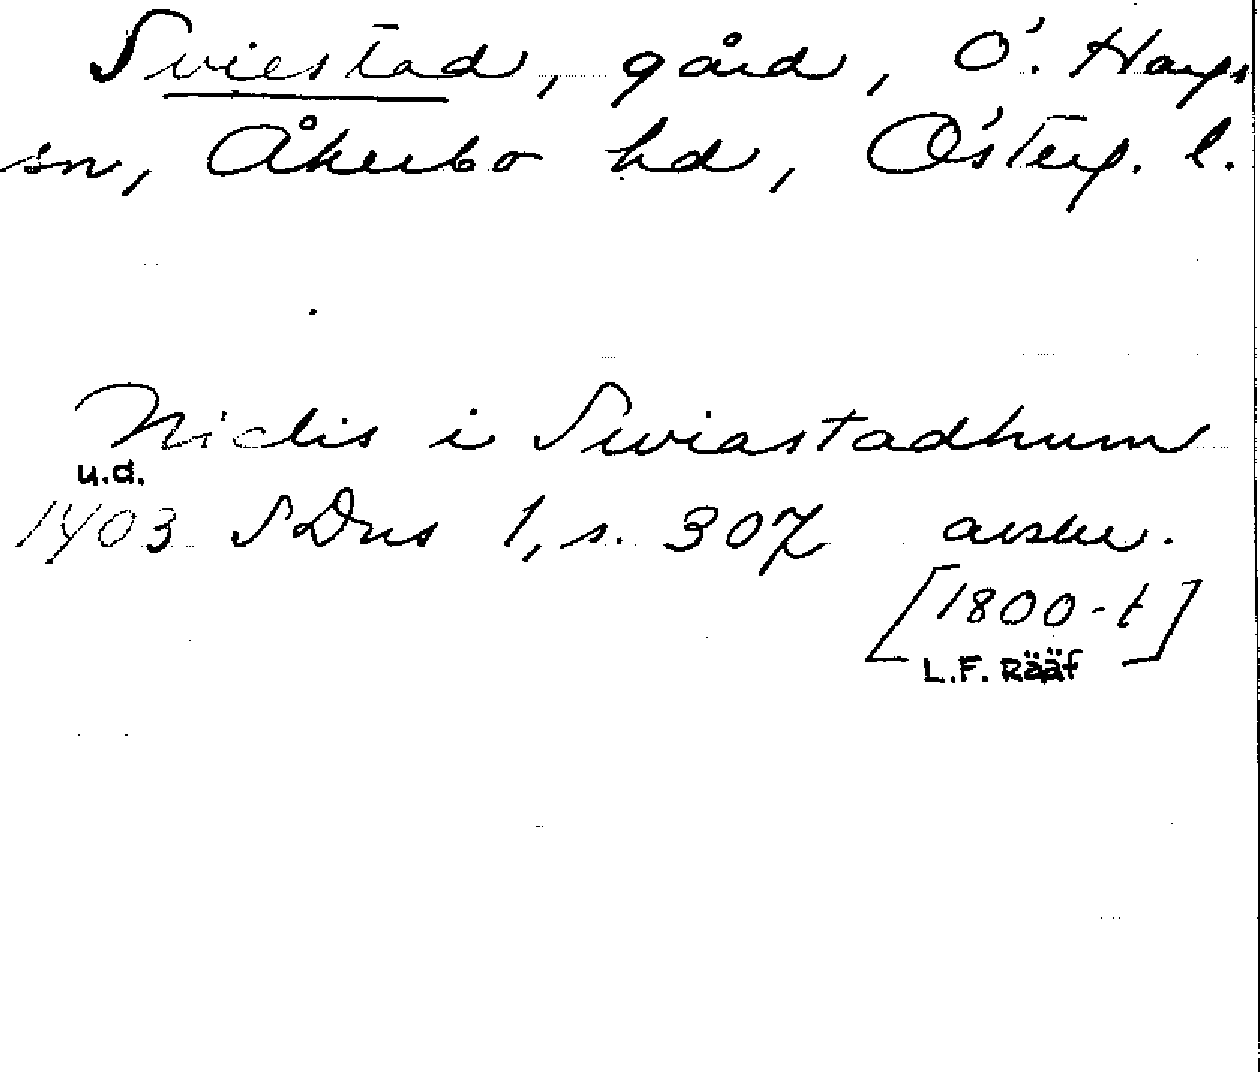 Sviestad, gård, Ö. Hargs
sn, Åkerbo hd, Österg. l.
Niclis i Swiastadhum
u.d.
1403 SDns 1, s. 307 avskr.
[1800-t]
L.F. Rääf